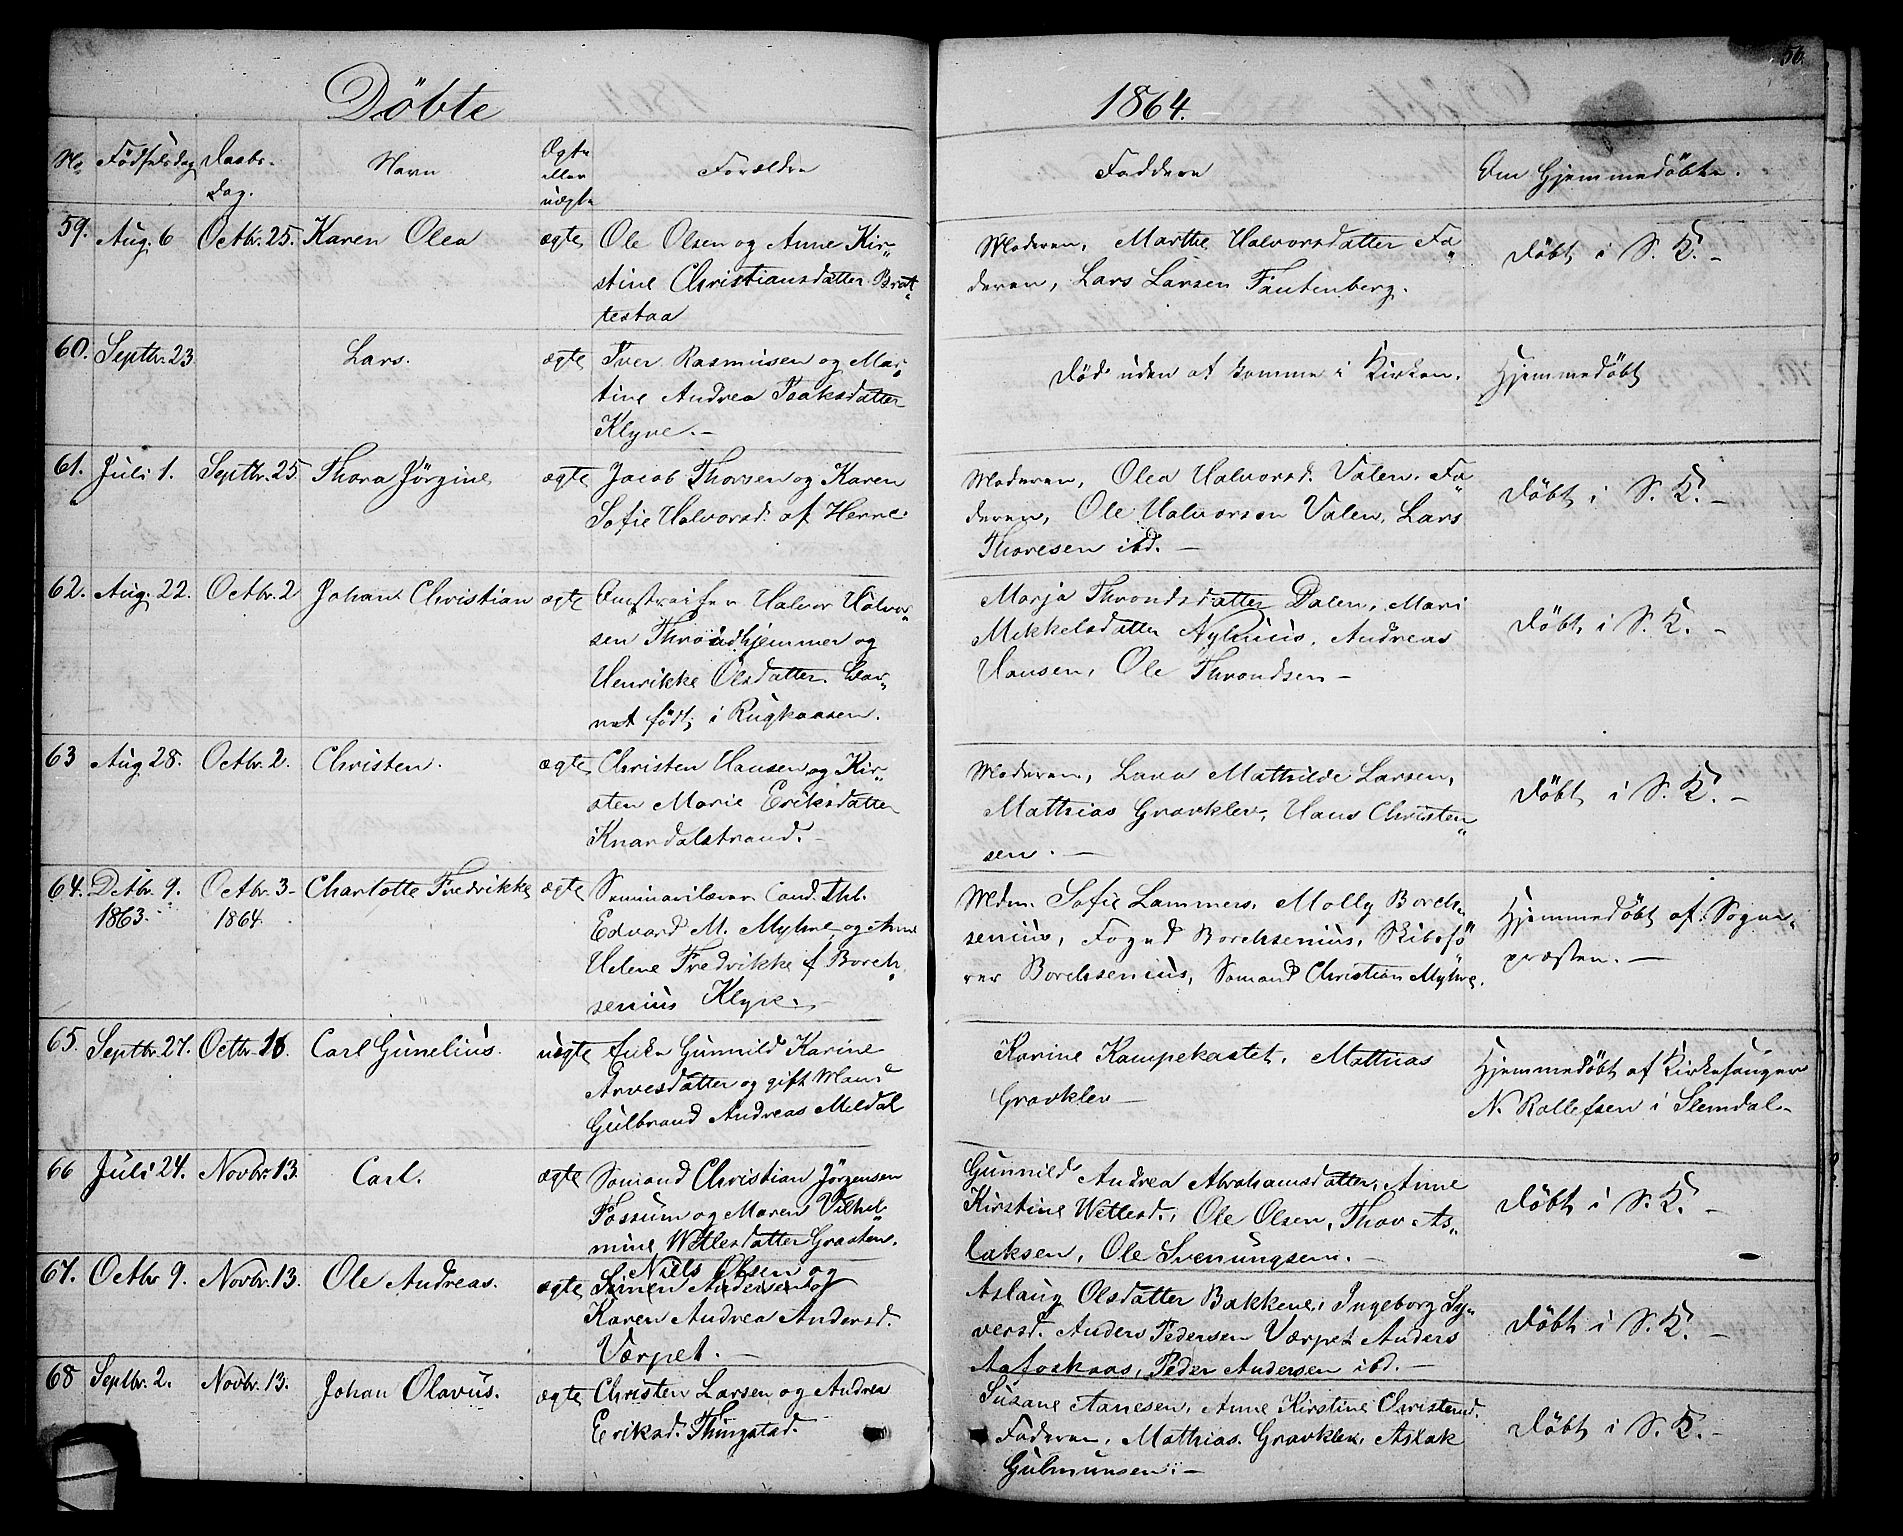 56.
Döbte
1864.
No Födselsdag Daabs-
dag.
Navn
Ægte
eller
uægte
Forældre
Faddere
Om Hjemmedöbte.
59. Aug. 6 Octbr. 25. Karen Olea ægte Ole Olsen og Anne Kir-
stine Christiansdatter Brat-
testaa
Moderen, Marthe Halvorsdatter Fa-
deren, Lars Larsen Fantenberg.
Döbt i S. K. -
60. Septbr. 23 Lars. ægte Iver Rasmusen og Mar-
tine Andrea Isaksdatter
Klyve. -
Död uden at komme i Kirken.
Hjemmedöbt
61. Juli 1. Septbr. 25. Thora Jörgine ægte Jacob Thorsen og Karen
Sofie Halvorsd. af Herre.
Moderen, Olea Halvorsd. Valen. Fa-
deren, Ole Halvorsen Valen, Lars
Thoresen ibd. -
Döbt i S. K. -
62. Aug. 22. Octbr. 2 Johan Christian ægte Halvor Halvor-
sen Throndhjemmer og
Henrikke Olsdatter. Bar-
net födt i Rugkaasen.
Marja Throndsdatter Dalen, Mari
Mekkelsdatter Nyhuus, Andreas
Hansen, Ole Throndsen -
Döbt i S. K. -
63 Aug. 28. Octbr. 2. Christen. ægte Christen Hansen og Kir-
sten Marie Eriksdatter
Knardalstrand. -
Moderen, Lava Mathilde Larsen,
Mathias Gravklev, Hans Christen-
sen. -
Döbt i S. K. -
64. Dctbr. 9.
1863.
Octbr. 3
1864.
Charlotte Fredrikke ægte Seminarilærer Cand. thl.
Edvard M. Myhre og Anne
Helene Fredrikke f. Borch-
senius Klyve. -
Mdrn. Sofie Lammers, Molly Borch-
senius, Foged Borchsenius, Skibsfö-
rer Borchsenius, Somand Christian Myhre.
Hjemmedöbt af Sogne-
præsten. -
65. Septbr. 27. Octbr. 16. Carl Gunelius. uægte Enke Gunnild Karine
Arvesdatter og gift Mand
Gulbrand Andreas Meldal
Karine Kampekastet, Mathias
Gravklev -
Hjemmedöbt af Kirkesanger
N. Rollefsen i Slemdal -
66 Juli 24. Novbr. 13. Carl. ægte Somand Christian Jörgensen
Fossum og Maren Vilhel-
mine Wetlesdatter Graaten.
Gunnild Andrea Abrahamsdatter, Anne
Kirstine Wetlesd., Ole Olsen, Thor As-
laksen, Ole Svenungsen. -
Döbt i S. K. -
67. Octbr 9. Novbr. 13. Ole Andreas. ægte Niels Olsen og
Simen Andersen og
Karen Andrea Andersd.
Værpet. -
Aslaug Olsdatter Bakkene, Ingeborg Sy-
versd. Anders Pedersen Værpet Anders
Aafoskaas, Peder Andersen ibd. -
Döbt i S. K. -
68 Septbr. 2. Novbr. 13. Johan Olavus. ægte Christen Larsen og Andrea
Eriksd. Thingstad.
Susane Aanesen, Anne Kirstine Christensd.
Faderen, Mathias Gravklev, Aslak
Gulmunsen. -
Döbt i S. K. -